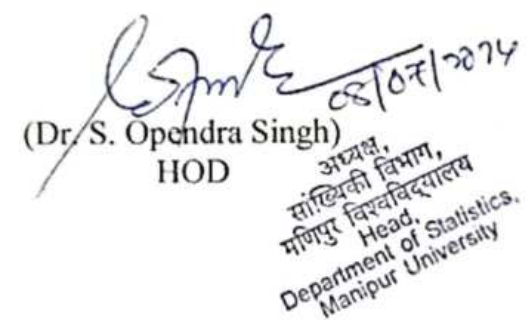 08/07/2024
(Dr. S. Opendra Singh)
HOD
अध्यक्ष,
सांख्यिकी विभाग,
मणिपुर विश्वविद्यालय
Head,
Department of Statistics,
Manipur University